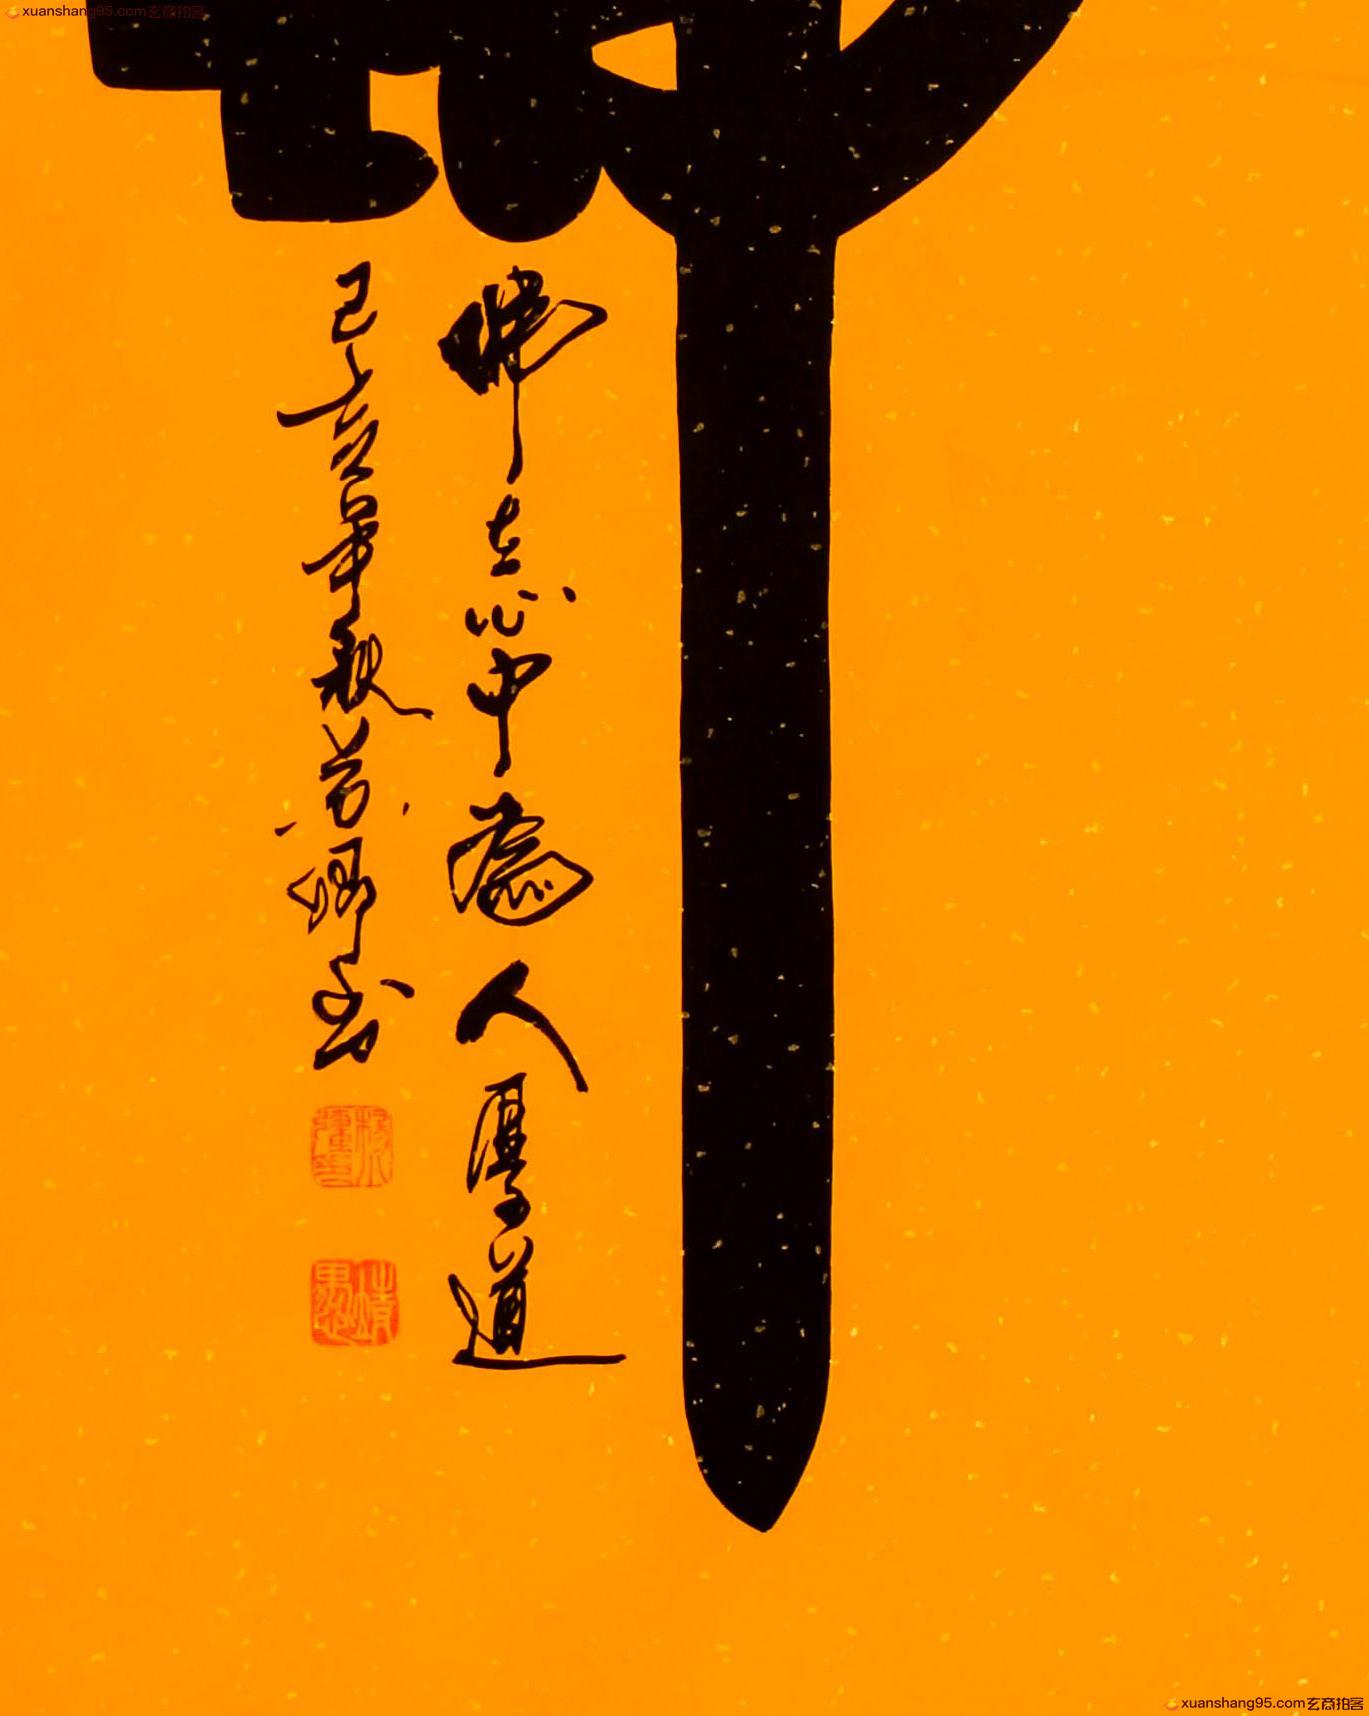 xuanshang95.com玄商拍客
佛在心中為人厚道
己亥年秋若卿书
靖愚
xuanshang95.com玄商拍客